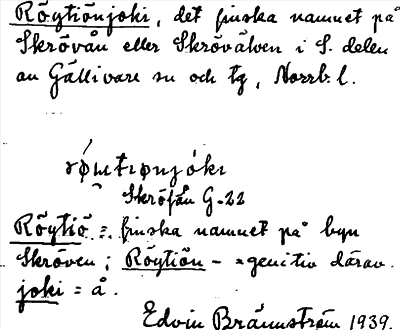 Röytiönjoki, det finska namnet på
Skrövån eller Skröväлven i S. delen
av Gällivare sn och tg, Norrb. l.
Skröfån G-22
Röytiö = finska namnet på byn
Skröven; Röytiön - = genitiv därav.
joki = å.
Edvin Brännström 1939.